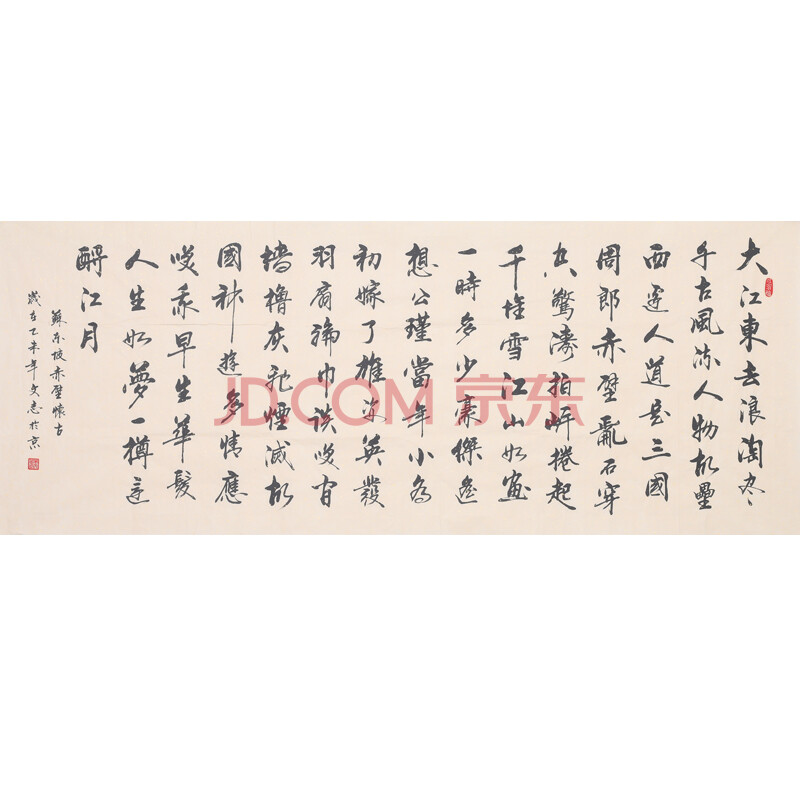 大江東去浪淘尽
千古風流人物故壘
西邊人道是三國
周郎赤壁亂石穿
空驚濤拍岸捲起
千堆雪江山如畫
一時多少豪傑遙
想公瑾當年小喬
初嫁了雄姿英發
羽扇綸巾談笑間
檣櫓灰飛煙滅故
國神遊多情應
笑我早生華髮
人生如夢一樽還
酹江月
蘇东坡赤壁懷古
歲在乙未年文志於京
JD.COM 京东